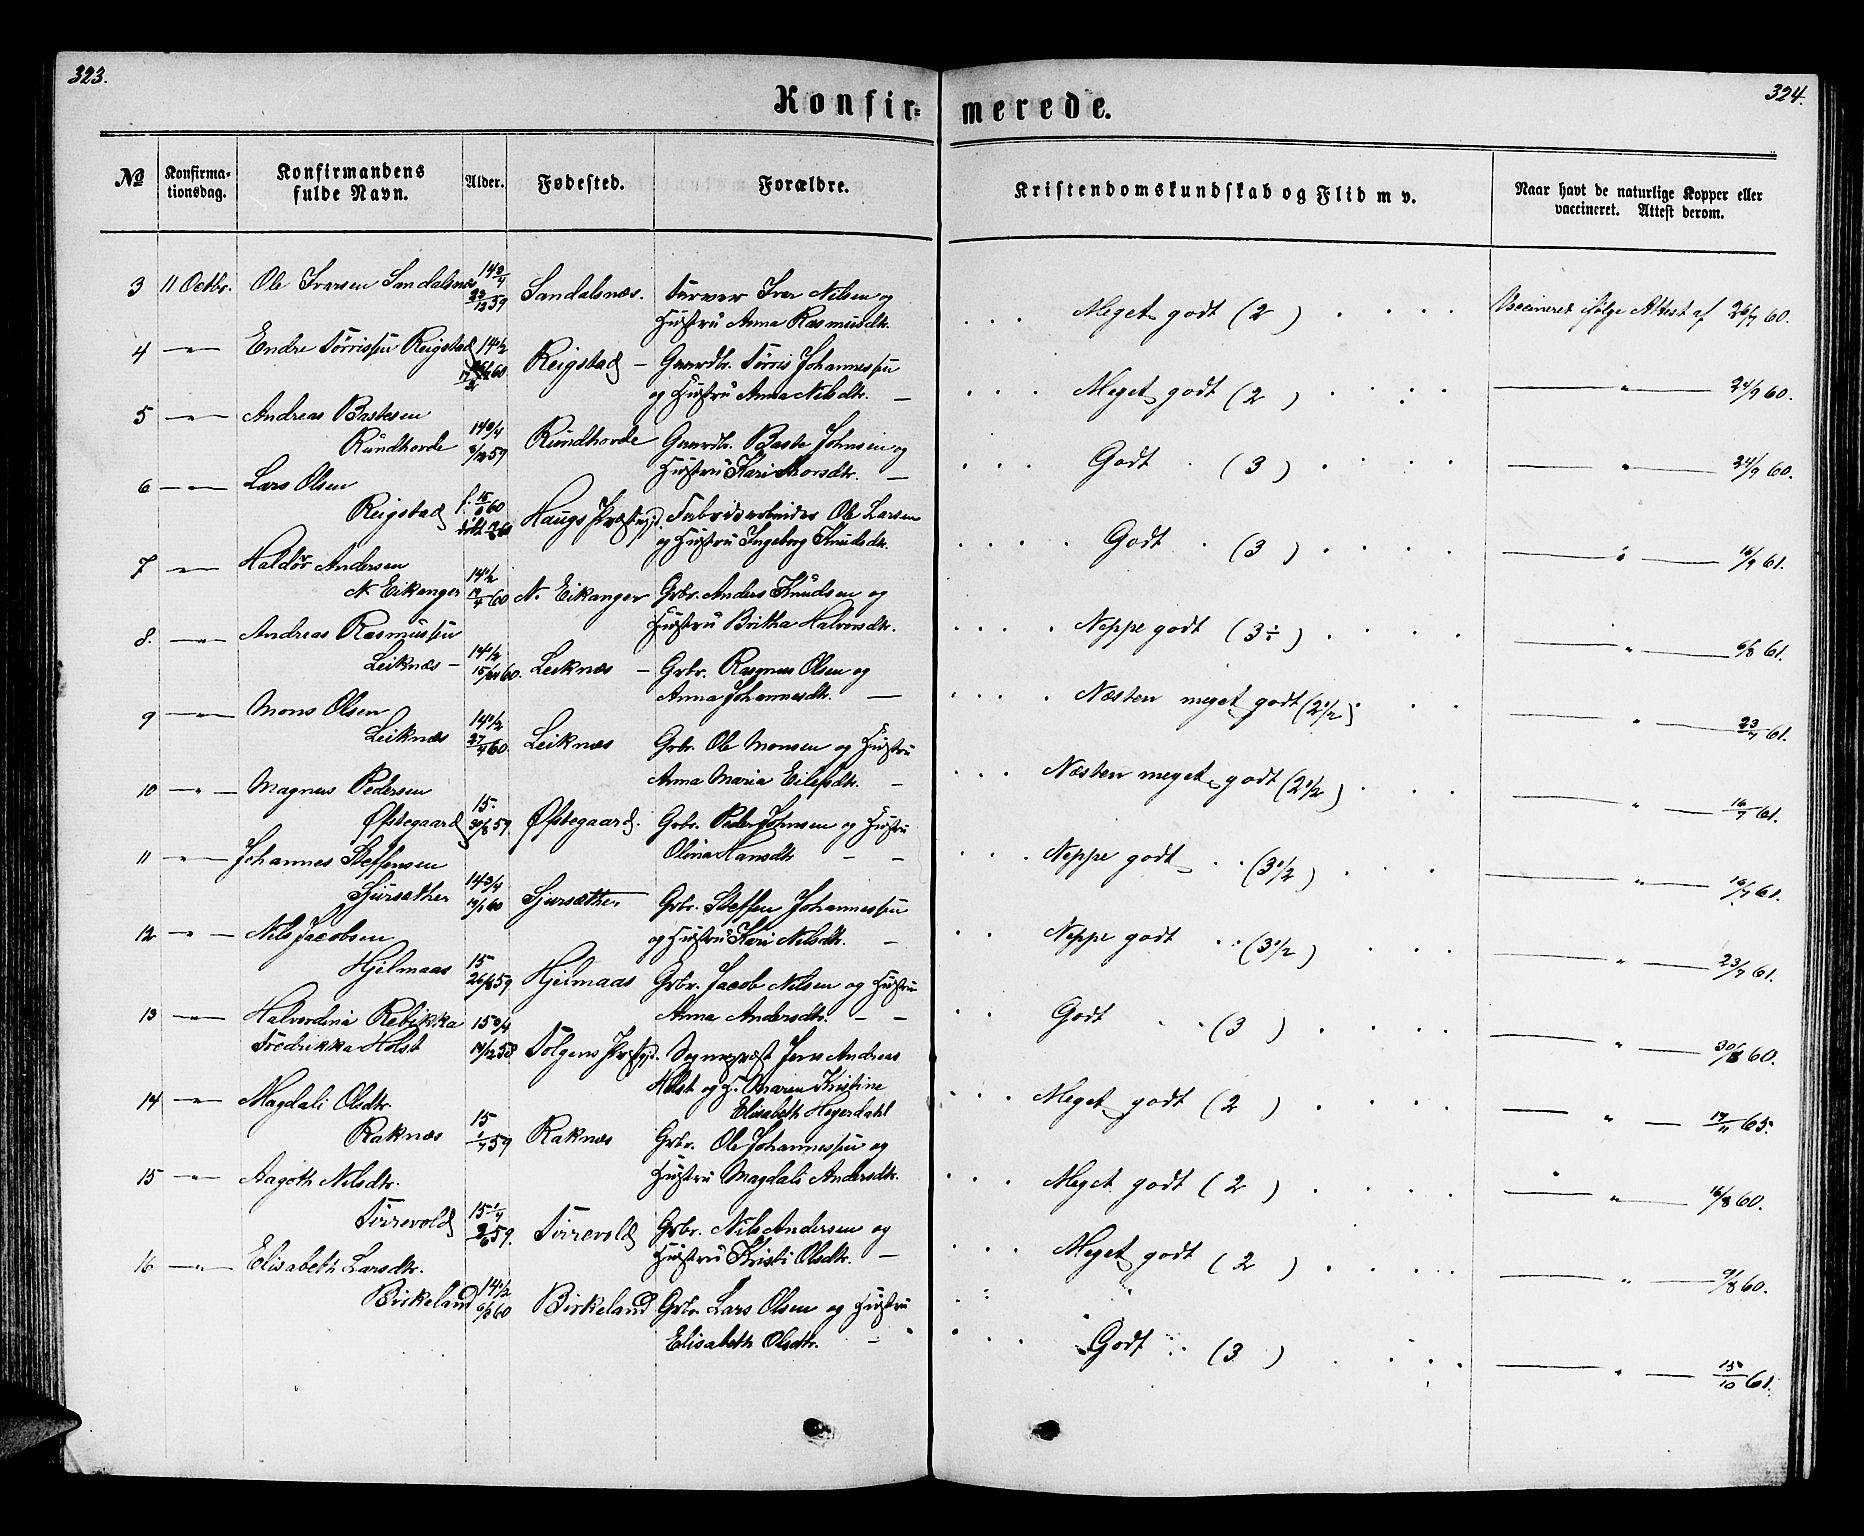 323.
324.
Konfir= merede.
No
Konfirma-
tionsdag.
Konfirmandens
fulde Navn.
Alder.
Fødested.
Forældre.
Kristendomskundskab og Flid m v.
Naar havt de naturlige Kopper eller
vaccineret. Attest derom.
3 11 Octbr. Ole Iversen Sandalsnæs 14 3/4 23/12 59 Sandalsnæs. Iver Nilsen og
Hustru Anna Rasmusdtr. Meget godt (2) Vaccineret ifølge Attest af 60.
4 — " — Endre Tørrissen Reigstad 14 1/2 60 Reigstad — Gaardbr. Tørris Johannessen
og Hustru Anna Nilsdtr. — Meget godt (2) — " — 24/9 60.
5 — " — Andreas Bastesen
Rundhovde 14 3/4 8/12 59 Rundhovde Gaardbr. Baste Johnsen og
Hustru Kari Thorsdtr. — Godt (3) — " — 24/9 60.
6 — " — Lars Olsen
Reigstad f. 60 Haugs Præstegjd. Fabrikarbeider Ole Larsen
og Hustru Ingeborg Knudsdtr. Godt (3) — " — 16/9 61.
7 — " — Haldor Andersen
N. Eikanger 14 1/2 60 N. Eikanger Grbr. Anders Knudsen og
Hustru Britha Halvorsdtr. Neppe godt (3÷) — " — 6/8 61.
8. — " — Andreas Rasmussen
Leiknæs — 14 1/2 60. Leiknæs — Grbr. Rasmus Olsen og
Anna Johannesdtr. — Næsten meget godt (2 1/2) — " — 23/7 61.
9 — " — Mons Olsen
Leiknæs 14 1/2 27/4 60. Leiknæs Grbr. Ole Monsen og Hustru
Anna Maria Eilefsdtr. — Næsten meget godt (2 1/2) — " — 16/7 61.
10 — " — Magnus Pedersen
Øfstegaard 15. 30/8 59 Øfstegaard. Grbr. Peder Johnsen og Hustru
Olina Hansdtr — — Neppe godt (3 1/2) — " — 16/7 61.
11 — " — Johannes Steffensen
Sjursæther 14 3/4 60 Sjursæther Grbr. Steffen Johannessen
og Hustru Kari Nilsdtr. — Neppe godt (3 1/2) — " — 23/7 61.
12 — " — Nils Jacobsen
Hjelmaas 15 26/8 59 Hjelmaas Grbr. Jacob Nilsen og Hustru
Anna Andersdtr. — — Godt (3) — " — 30/8 60.
13 — " — Halvordina Rebekka
Fredrikka Holst 15 3/4 58 Tolgens Præstegjd. Sognepræst Jens Andreas
Holst og H. Maren Kristine
Elisabeth Heyerdahl Meget godt (2) — " — 65.
14 — " — Magdali Olsdtr.
Raknæs 15 1/7 59 Raknæs Grbr. Ole Johannessen og
Hustru Magdali Andersdtr. Meget godt (2) — " — 16/8 60.
15 — " — Aagoth Nilsdtr.
Torrevold 15 1/4 59. Torrevold Grbr. Nils Andersen og
Hustru Kristi Olsdtr. — Meget godt (2) — " — 9/8 60.
16 — " — Elisabeth Larsdtr.
Birkeland 14 1/2 60 Birkeland Grbr. Lars Olsen og Hustru
Elisabeth Olsdtr. — Godt (3) — " — 15/10 61.